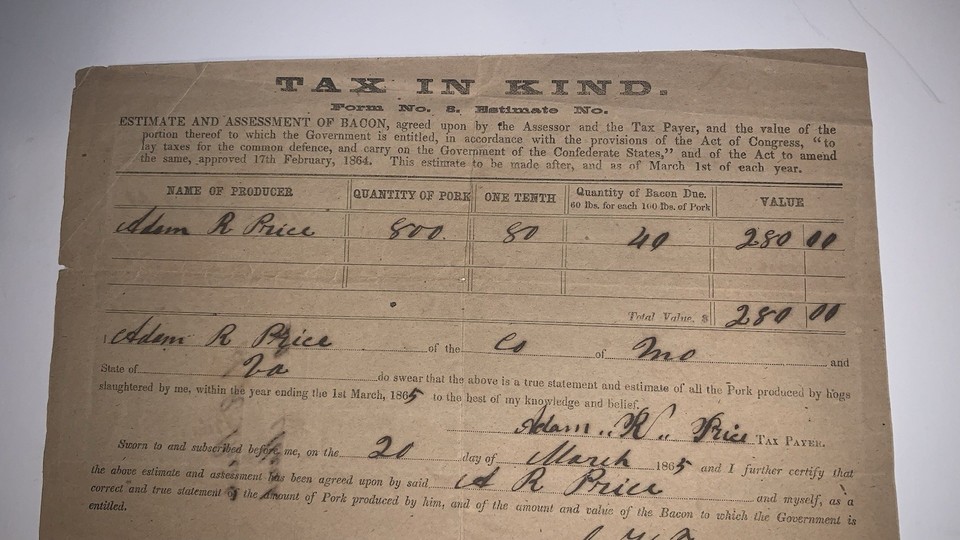 TAX IN KIND.
Form No. 8. Estimate No.
ESTIMATE AND ASSESSMENT OF BACON, agreed upon by the Assessor and the Tax Payer, and the value of the
portion thereof to which the Government is entitled, in accordance with the provisions of the Act of Congress, "to
lay taxes for the common defence, and carry on the Government of the Confederate States," and of the Act to amend
the same, approved 17th February, 1864. This estimate to be made after, and as of March 1st of each year.
NAME OF PRODUCER QUANTITY OF PORK ONE TENTH Quantity of Bacon Due. 60 lbs. for each 100 lbs. of Pork VALUE
Adam R Price 800. 80 40 280 00
Total Value, $ 280 00
I Adam R Price of the Co of Mo and
State of Va do swear that the above is a true statement and estimate of all the Pork produced by hogs
slaughtered by me, within the year ending the 1st March, 1865 to the best of my knowledge and belief.
Adam R. Price TAX PAYER.
Sworn to and subscribed before me, on the 20 day of March 1865 and I further certify that
the above estimate and assessment has been agreed upon by said A R Price and myself, as a
correct and true statement of the amount of Pork produced by him, and of the amount and value of the Bacon to which the Government is
entitled.